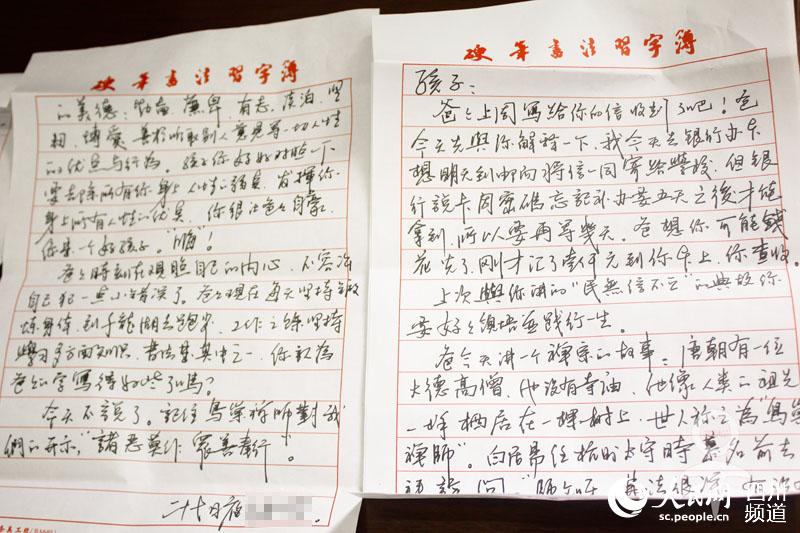 硬筆書法習字簿
的美德:勤奋、廉卑、有志、淡泊、坚
韧、博爱、善于听取别人意见等一切人性
的优点与行为。孩子你好好对照一下
要去除所有你身上人性的弱点,发挥你
身上所有人性的优点,你很让爸爸自豪,
你是一个好孩子。"嗨"!
爸爸时刻在观照自己的内心,不容许
自己犯一点小错误了。爸爸现在每天坚持锻
炼身体,到千龙湖去跑步,工作之余坚持
學习多方面知识,书法是其中之一,你认为
爸爸的字写得好些了吗?
今天不说了。记住鸟巢禅师對我
們的开示"諸恶莫作 眾善奉行"。
二十日夜
硬筆書法習字簿
孩子:
爸爸上周寫给你的信收到了吧!爸
今天先與你解释一下,我今天去银行办卡
想明天到邮局将信一同寄给學校,但银
行说卡因密碼忘记补办要五天之後才能
拿到,所以要再等幾天。爸想你可能錢
花完了,刚才汇了壹仟元到你卡上,你查收。
上次與你讲的"民無信不立"的典故你
要好好领悟並践行一生。
爸今天讲一个禅宗的故事:唐朝有一位
大德高僧,他没有寺庙,他像人类的祖先
一样栖居在一棵树上,世人称之为"鸟巢
禅師"。白居易任杭州太守時慕名前去
人民网 四川
sc.people.cn 频道